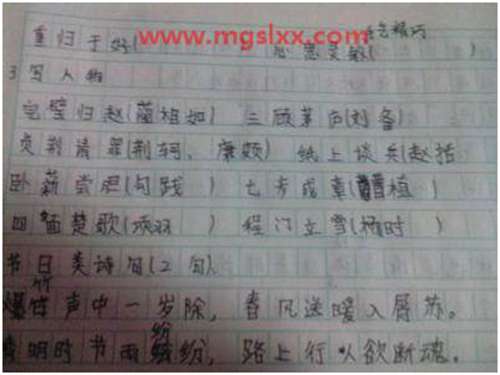 www.mgslxx.com
重归于好( 心思灵敏( )
3写人物
完璧归赵(蔺相如) 三顾茅庐(刘备)
负荆请罪(荆轲、廉颇) 纸上谈兵(赵括
卧薪尝胆(勾践) 七步成章(曹植)
四面楚歌(项羽) 程门立雪(杨时)
节日类诗句(2句)
爆竹声中一岁除,春风送暖入屠苏。
清明时节雨纷纷,路上行人欲断魂。